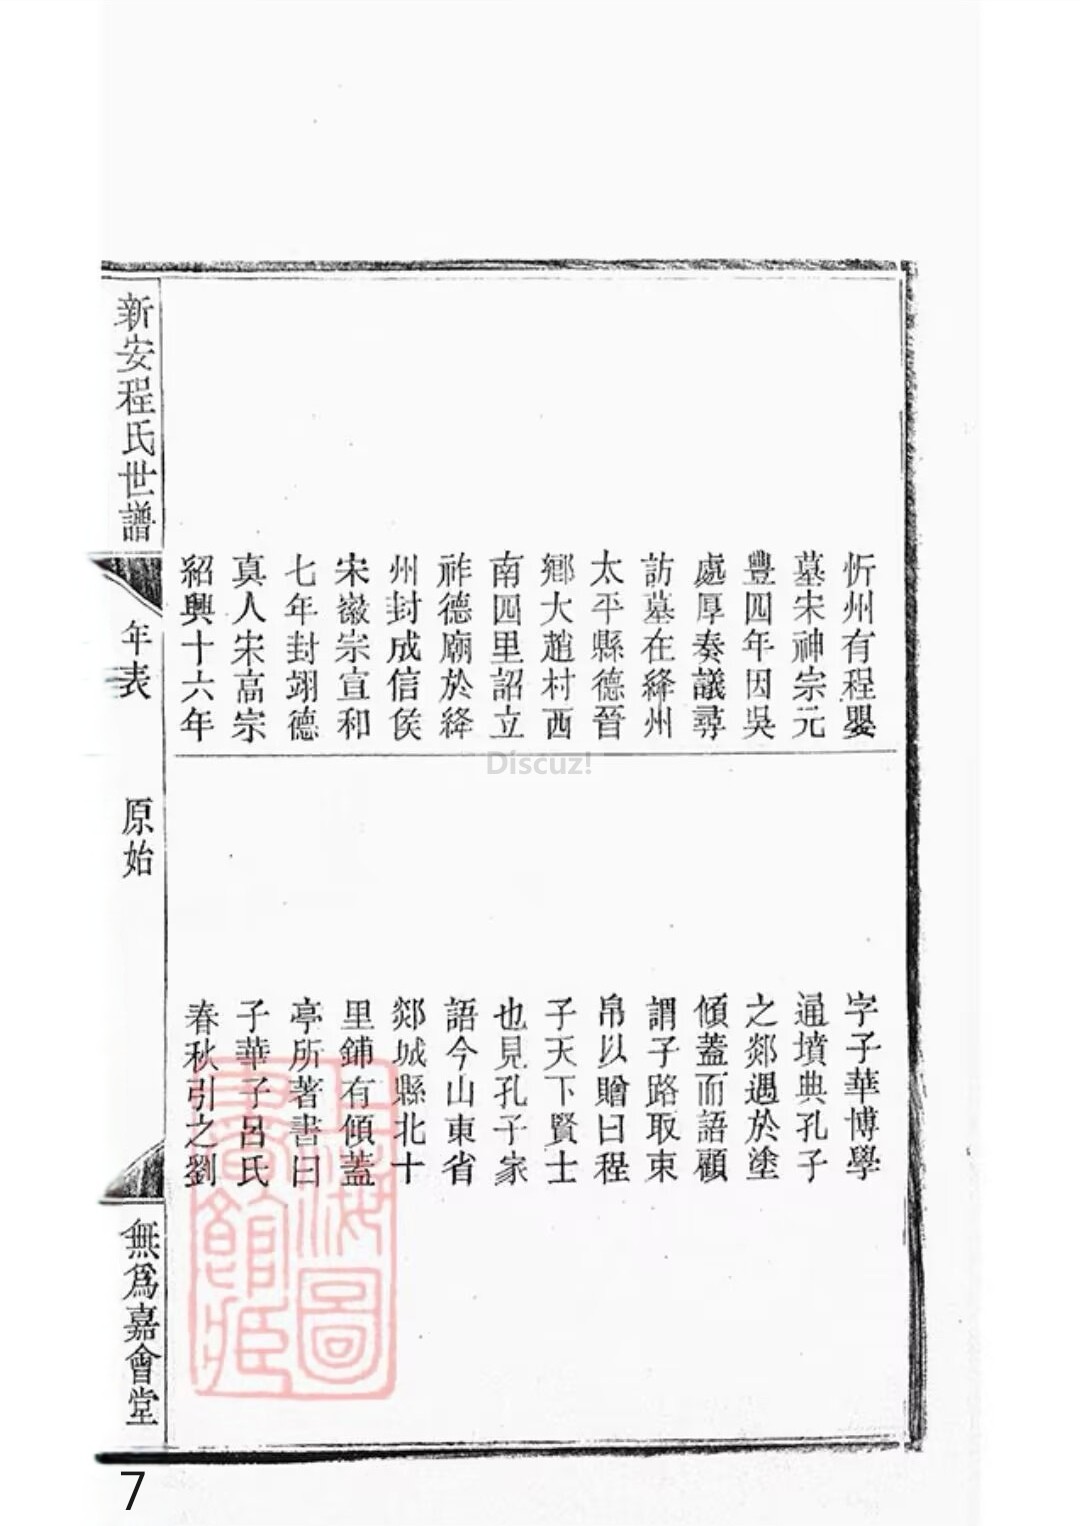 忻州有程嬰
墓宋神宗元
豐四年因吳
處厚奏議尋
訪墓在絳州
太平縣德晉
鄉大趙村西
南四里詔立
祚德廟於絳
州封成信侯
宋徽宗宣和
七年封翊德
真人宋高宗
紹興十六年
字子華博學
通墳典孔子
之郯遇於塗
傾蓋而語顧
謂子路取束
帛以贈曰程
子天下賢士
也見孔子家
語今山東省
郯城縣北十
里鋪有傾蓋
亭所著書曰
子華子呂氏
春秋引之劉
新安程氏世譜
年表
原始
無為嘉會堂
上海圖
書館藏
Discuz!
7